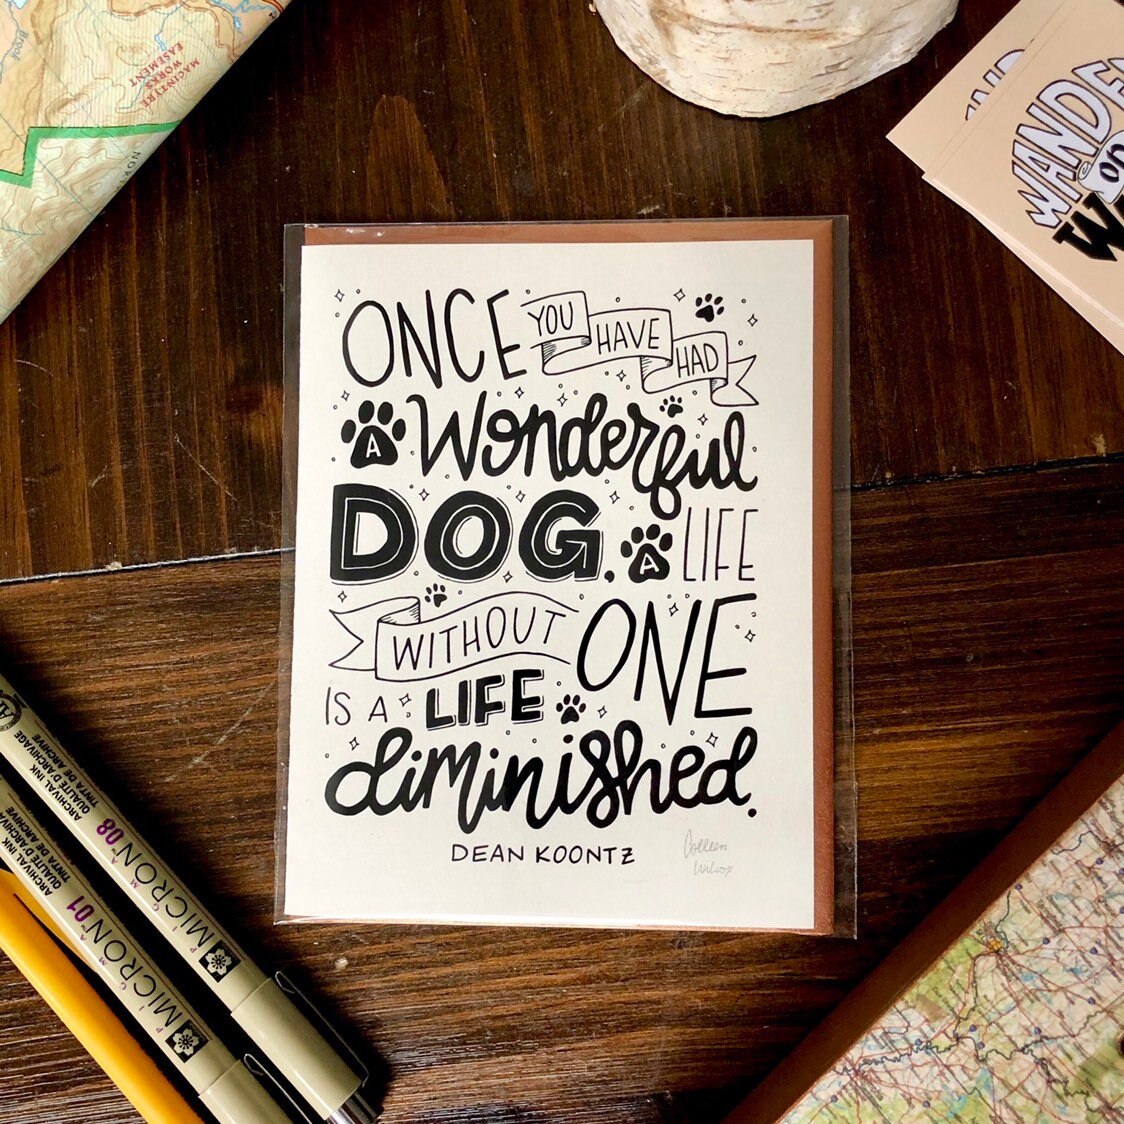 ONCE YOU HAVE HAD
A Wonderful
DOG. A LIFE
WITHOUT ONE
IS A LIFE
diminished.
DEAN KOONTZ
Colleen
Wilcox
MACINTYRE
WORKS
EASEMENT
Brook
WANDER
OR
ARCHIVAL INK
QUALITÉ D'ARCHIVAGE
TINTA DE ARCHIVE
PIGMA
MICRON 08
ARCHIVAL INK
TINTA DE ARCHIVE
PIGMA
MICRON 01